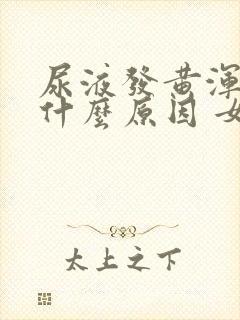 尿液發黃渾
什麼原因 女
太上之下